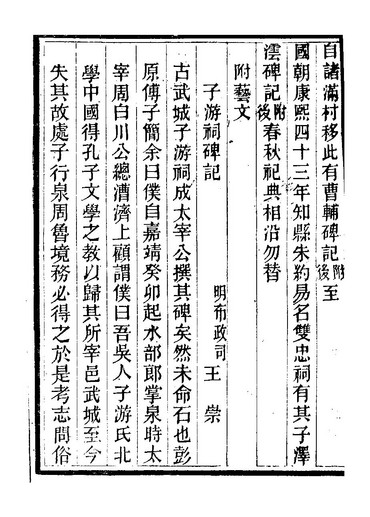 自諸滿村移此有曹輔碑記附後至
國朝康熙四十三年知縣朱約易名雙忠祠有其子澤
澐碑記附後春秋祀典相沿勿替
附藝文
子游祠碑記
明布政司王崇
古武城子游祠成太宰公撰其碑矣然未命石也彭
原傅子簡余曰僕自嘉靖癸卯起水部郎掌泉時太
宰周白川公總漕濟上顧謂僕曰吾吳人子游氏北
學中國得孔子文學之教以歸其所宰邑武城至今
失其故處子行泉周魯境務必得之於是考志問俗